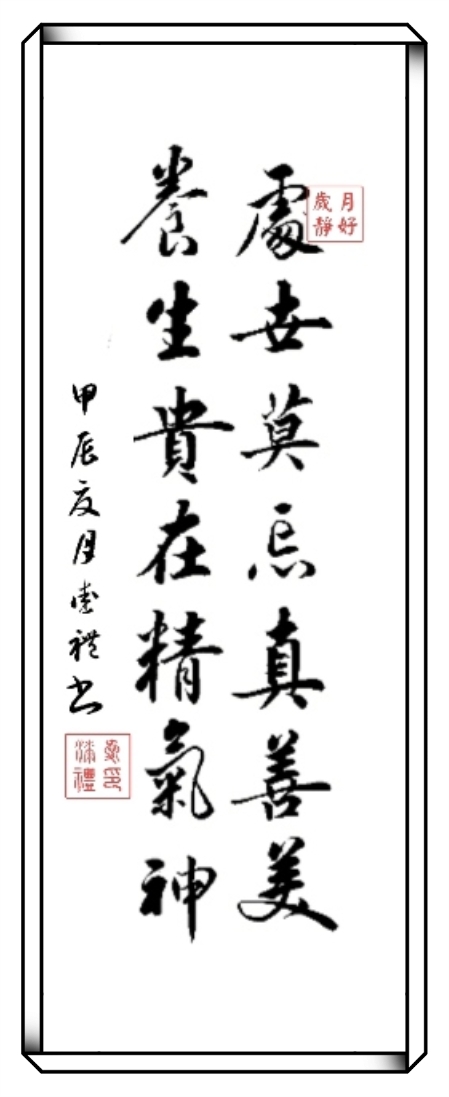 處世莫忘真善美
月好
歲靜
養生貴在精氣神
甲辰夏月崇禮書